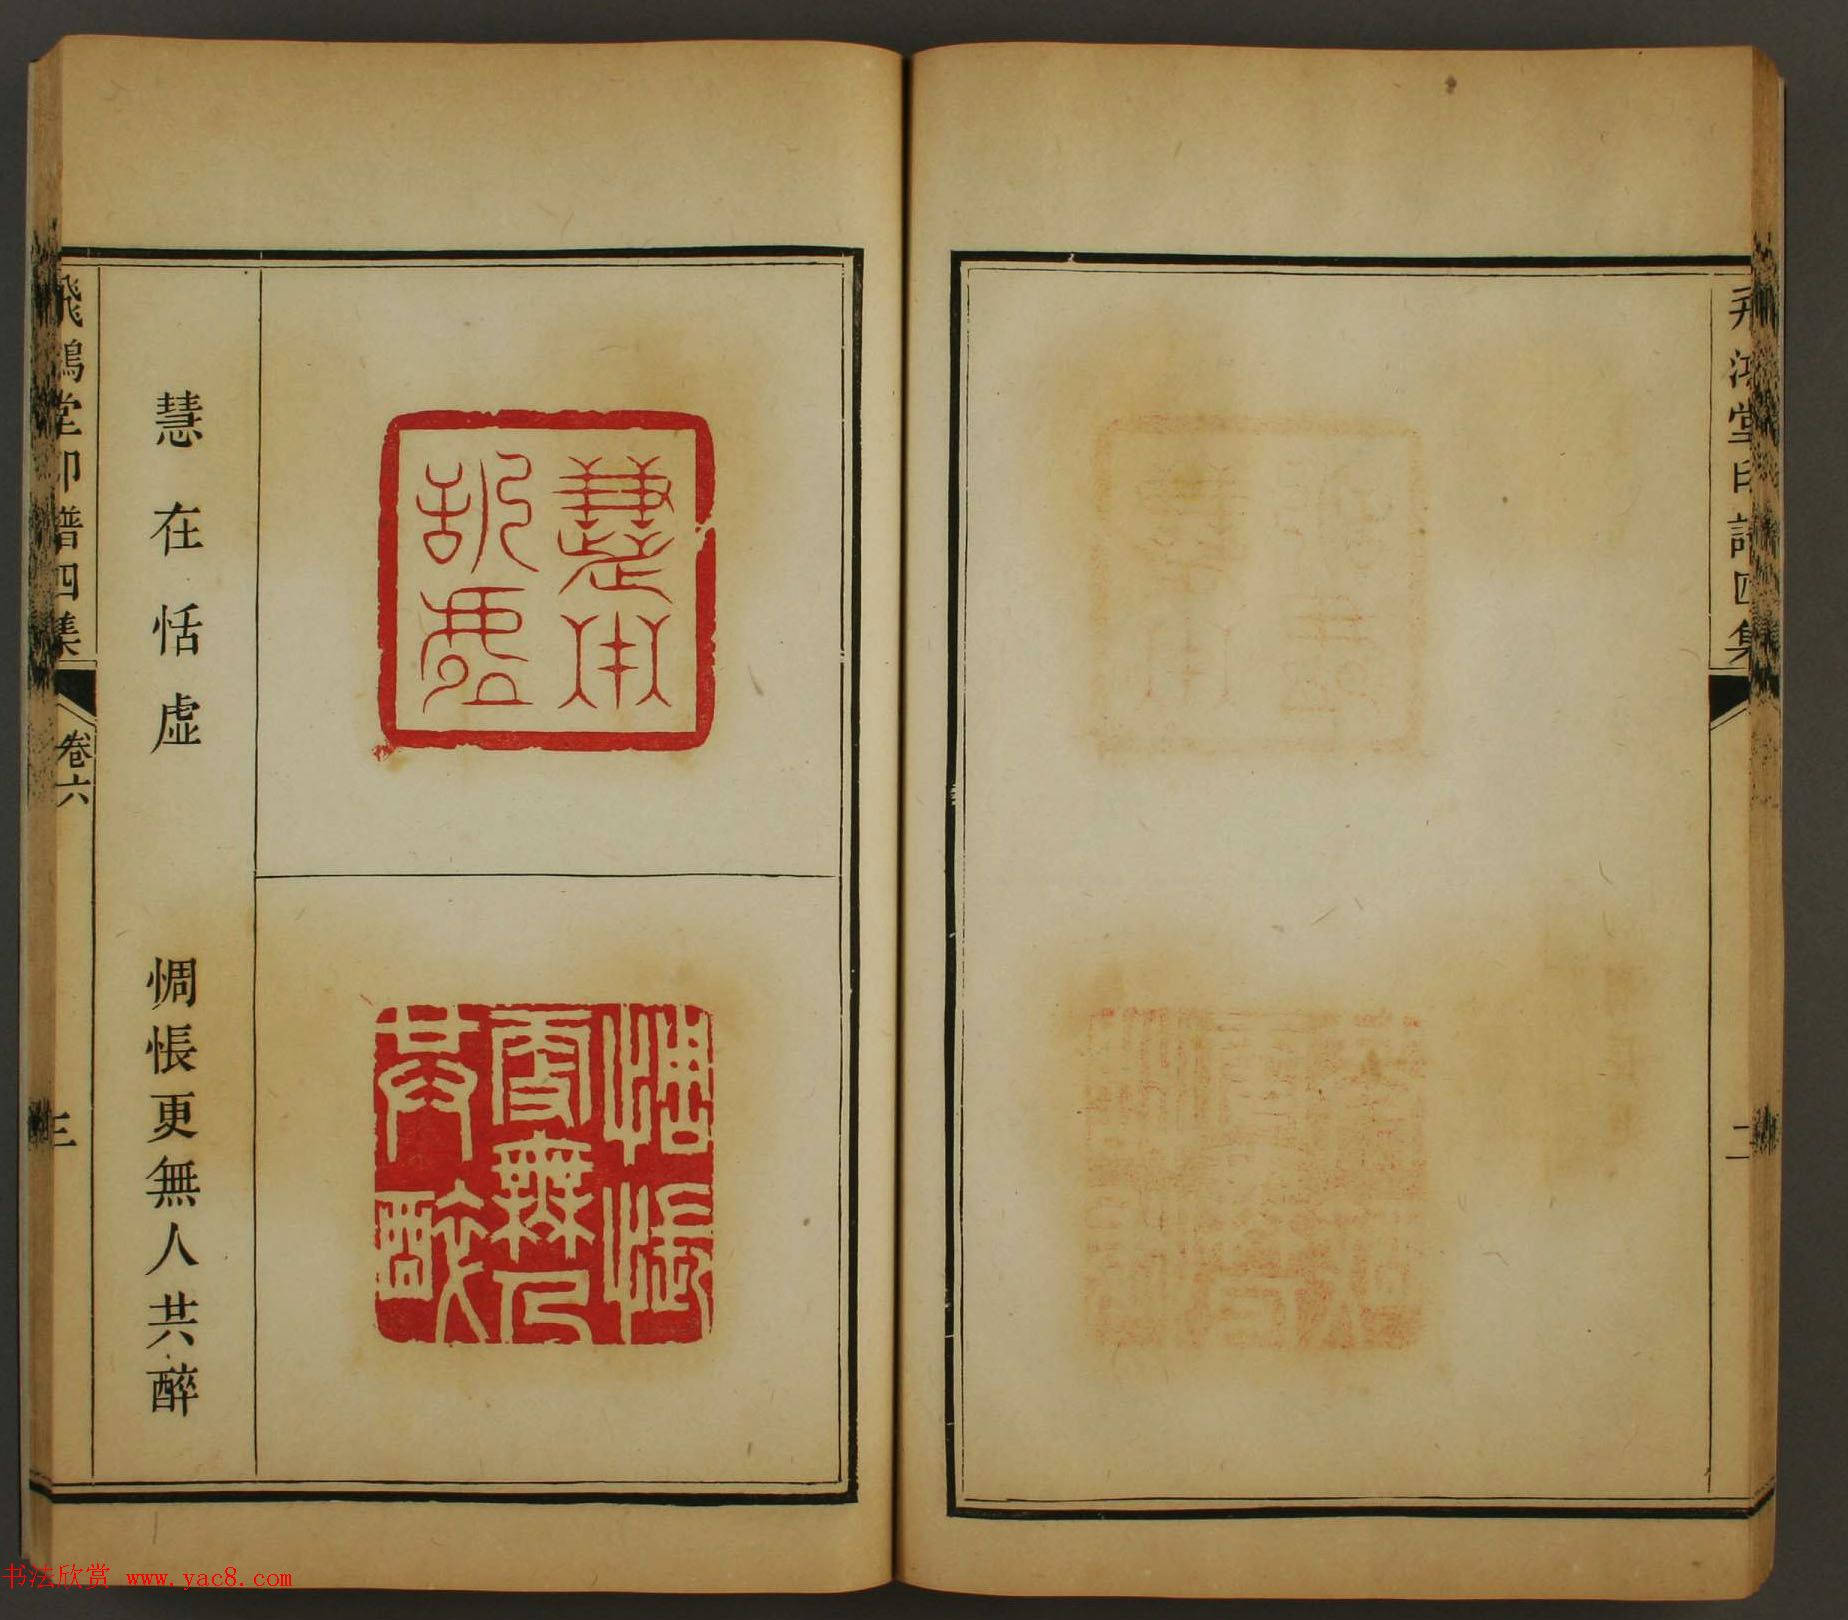 飛鴻堂印譜四集
二
慧在恬虛
惆悵更無人共醉
飛鴻堂印譜四集
卷六
三
书法欣赏 www.yac8.com